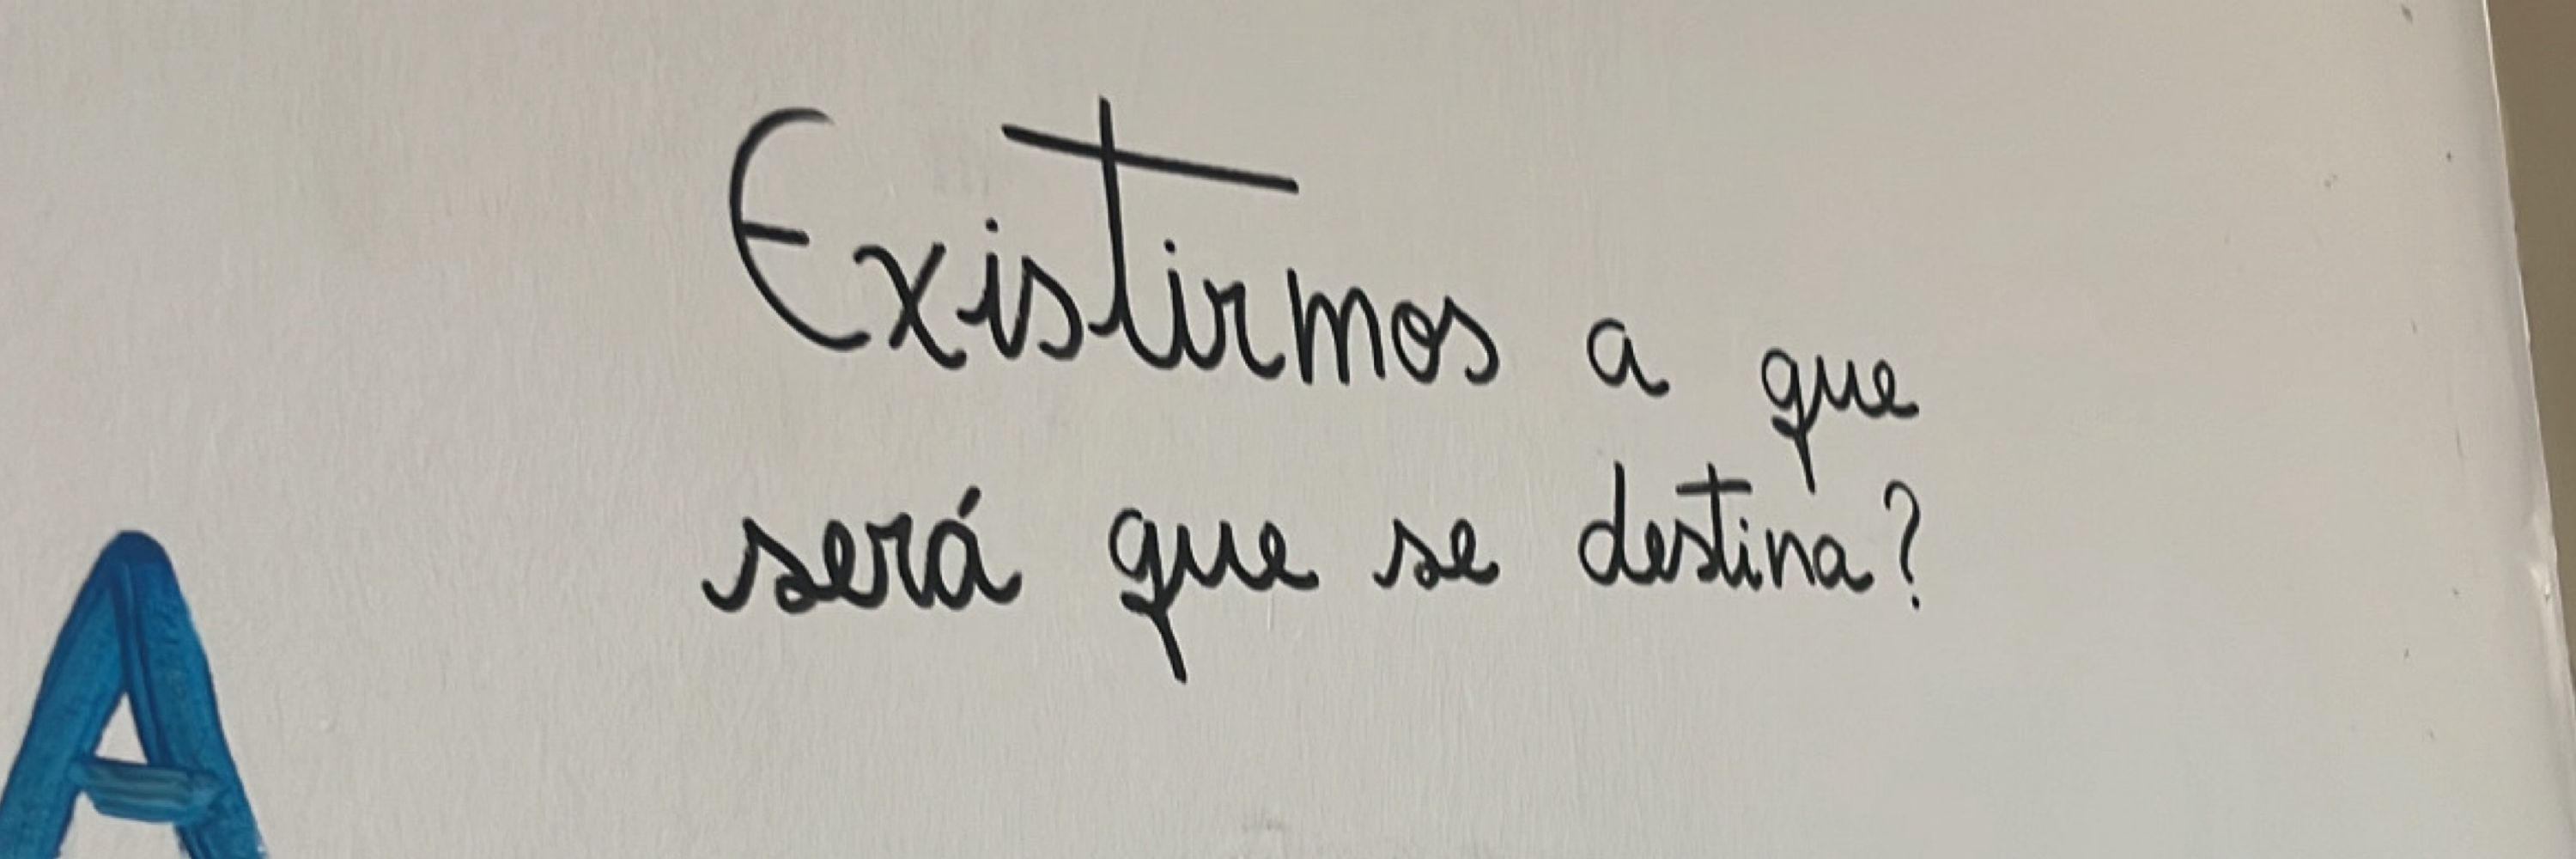 Existirmos a que
será que se destina?
A